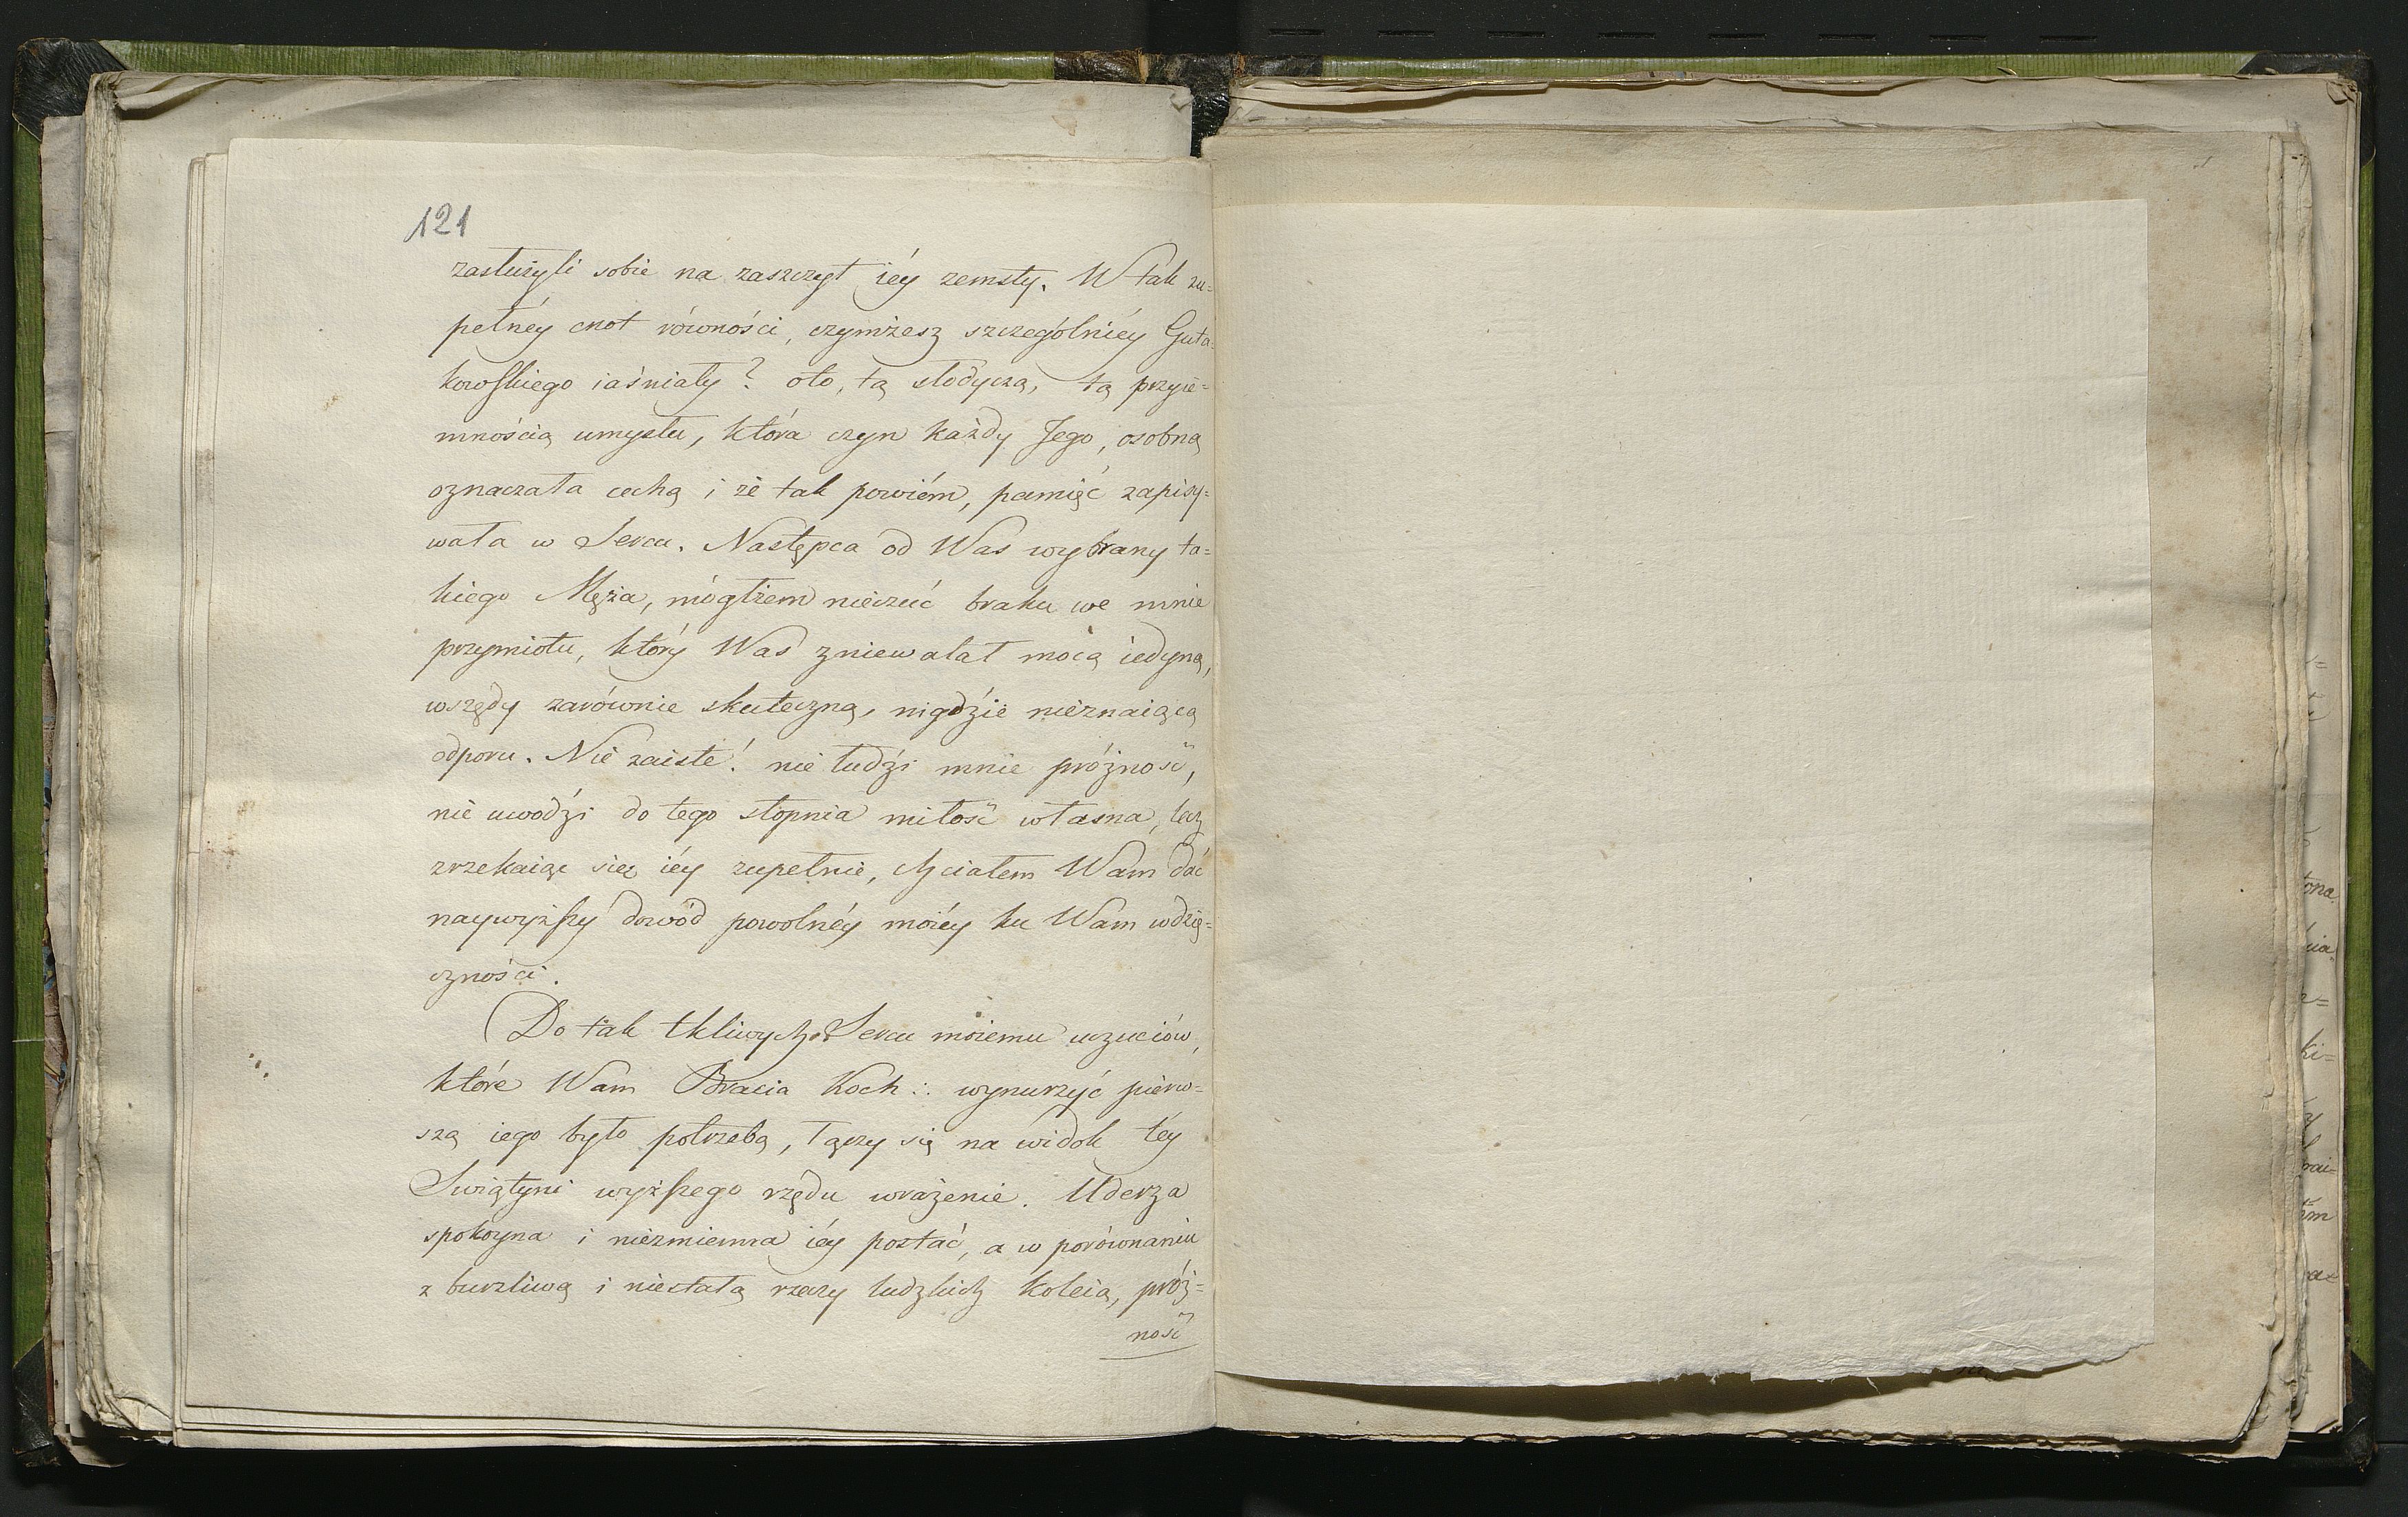 121
zasłużyli sobie na zaszczyt iéy zemsty. W tak zu=
pełnéy cnot równości, czymżesz szczególniéy Guta=
kowskiego iaśniały? oto, tą słodyczą, tą przyie=
mnością umysłu, która czyn każdy Jego, osobną
oznaczała cechą i że tak powiém, pamięć zapisy=
wała w Sercu. Następca od Was wybrany ta=
kiego Męża, mógłżem nieczuć braku we mnie
przymiotu, który Was zniewalał mocą iedyną,
wszędy zarównie skuteczną, nigdzie nieznaiącą
odporu. Nie zaiste! nie łudzi mnie próżność,
nie uwodzi do tego stopnia miłość własna, lecz
zrzekaiąc się iéy zupełnie, chciałem Wam dać
naywyższy dowód powolnéy moiéy ku Wam wdzię=
czności.
Do tak tkliwych Sercu moiemu uczuciów,
które Wam Bracia Koch: wynurzyć pierw=
szą iego było potrzebą, łączy się na widok téy
Swiątyni wyższego rzędu wrażenie. Uderza
spokoyna i niezmienna iéy postać, a w porównaniu
z burzliwą i niestałą rzeczy ludzkich koleią, próż=
ność